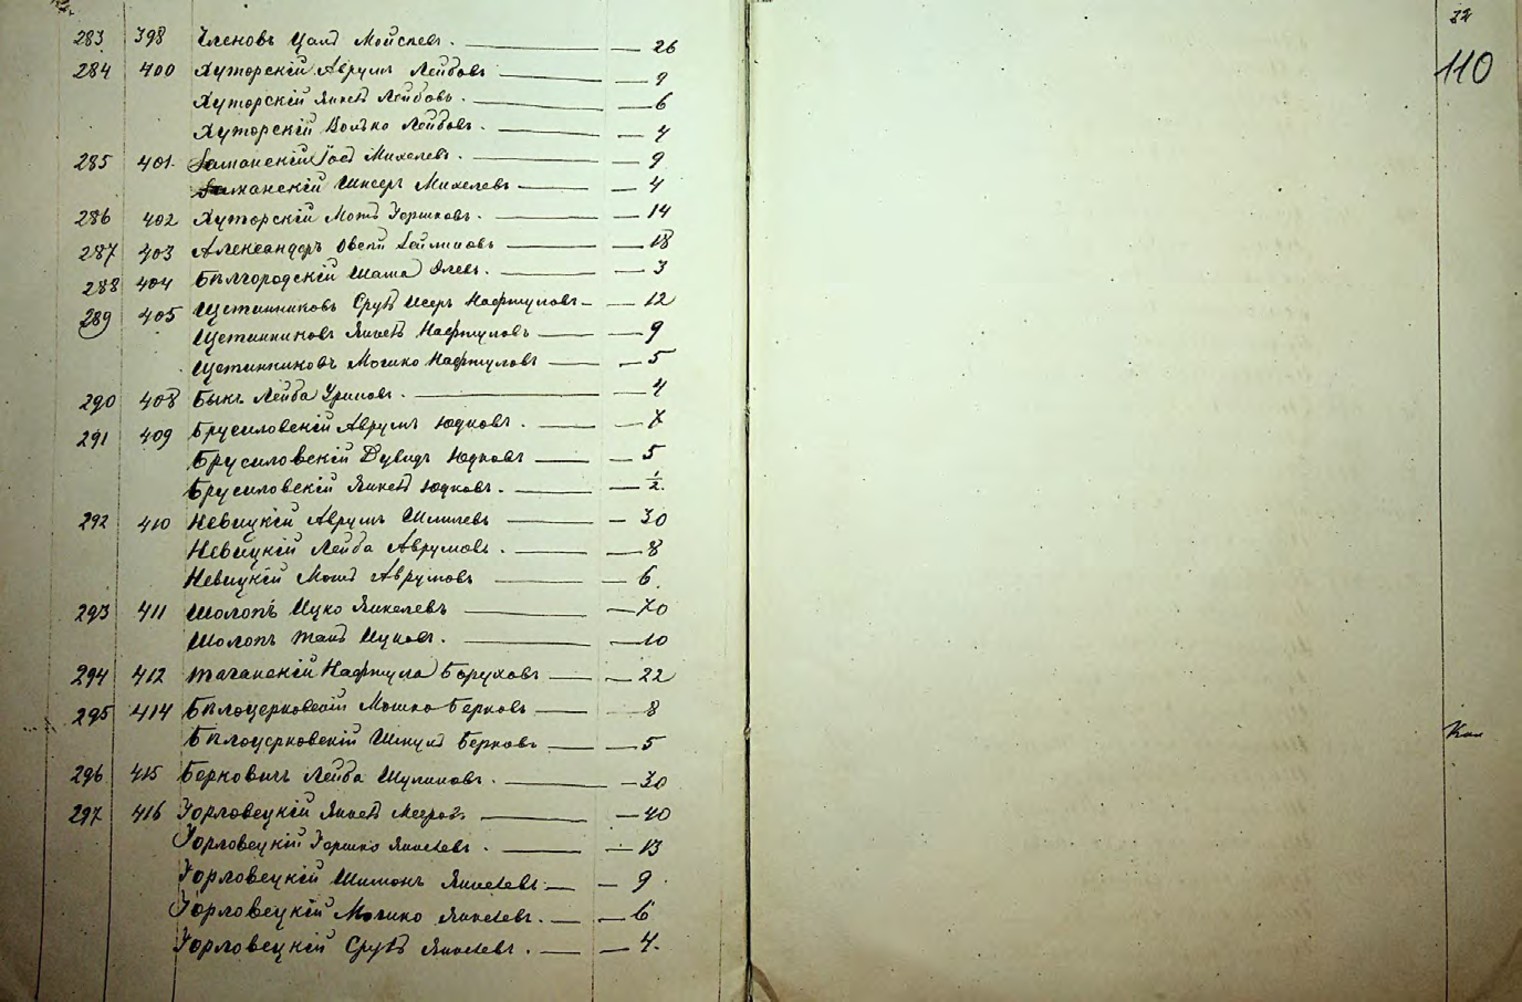 283 398 Членовъ Цаль Мойсеевъ. — 26
284 400 Хуторскій Аврумъ Лейбовъ — 9
Хуторскій Янкель Лейбовъ. — 6
Хуторскій Волько Лейбовъ. — 4
285 401. Михелевъ. — 9
Михелевъ — 4
286 402 Хуторскій Мот Горшковъ. — 14
287 403 Александеръ Овсей — 18
288 404 Бѣлгородскій Шая. — 3
289 405 Щетинниковъ Сруль Исеръ Нафтуловъ — 12
Щетинниковъ Янкель Нафтуловъ — 9
Щетинниковъ Мошко Нафтуловъ — 5
290 408 Быкъ Лейба Уриновъ. — 4
291 409 Брусиловскій Аврумъ Юдковъ. — 7
Брусиловскій Дувидъ Юдковъ — 5
Брусиловскій Янкель Юдковъ. — 1/2.
292 410 Невицкій Аврумъ Шмилевъ — 30
Невицкій Лейба Аврумовъ. — 8
Невицкій Мот Аврумовъ — 6.
293 411 Шолопъ Ицко Янкелевъ — 70
Шолопъ Ицковъ. — 10
294 412 Таганскій Нафтула Боруховъ — 22
295 414 Бѣлоцерковскій Мошко Берковъ — 8
Бѣлоцерковскій Шмуль Берковъ — 5
296 415 Берковичъ Лейба Шулимовъ. — 30
297 416 Горловецкій Янкель — 40
Горловецкій Горшко Янкелевъ. — 13
Горловецкій Шимонъ Янкелевъ — 9
Горловецкій Мошко Янкелевъ. — 6
Горловецкій Сруль Янкелевъ. — 4.
32
110